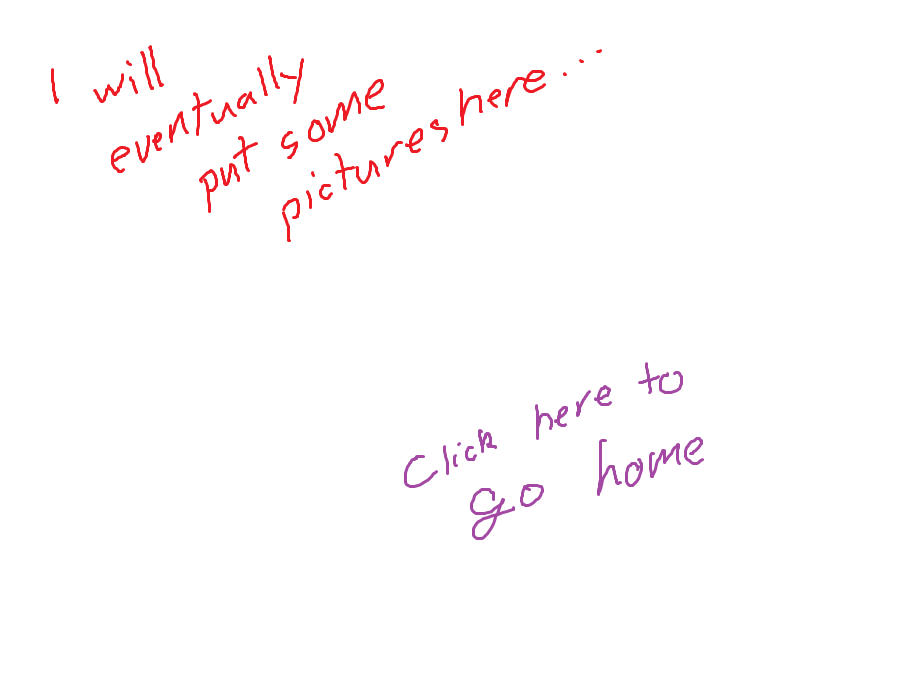 I will
eventually
put some
pictures here...
Click here to
go home